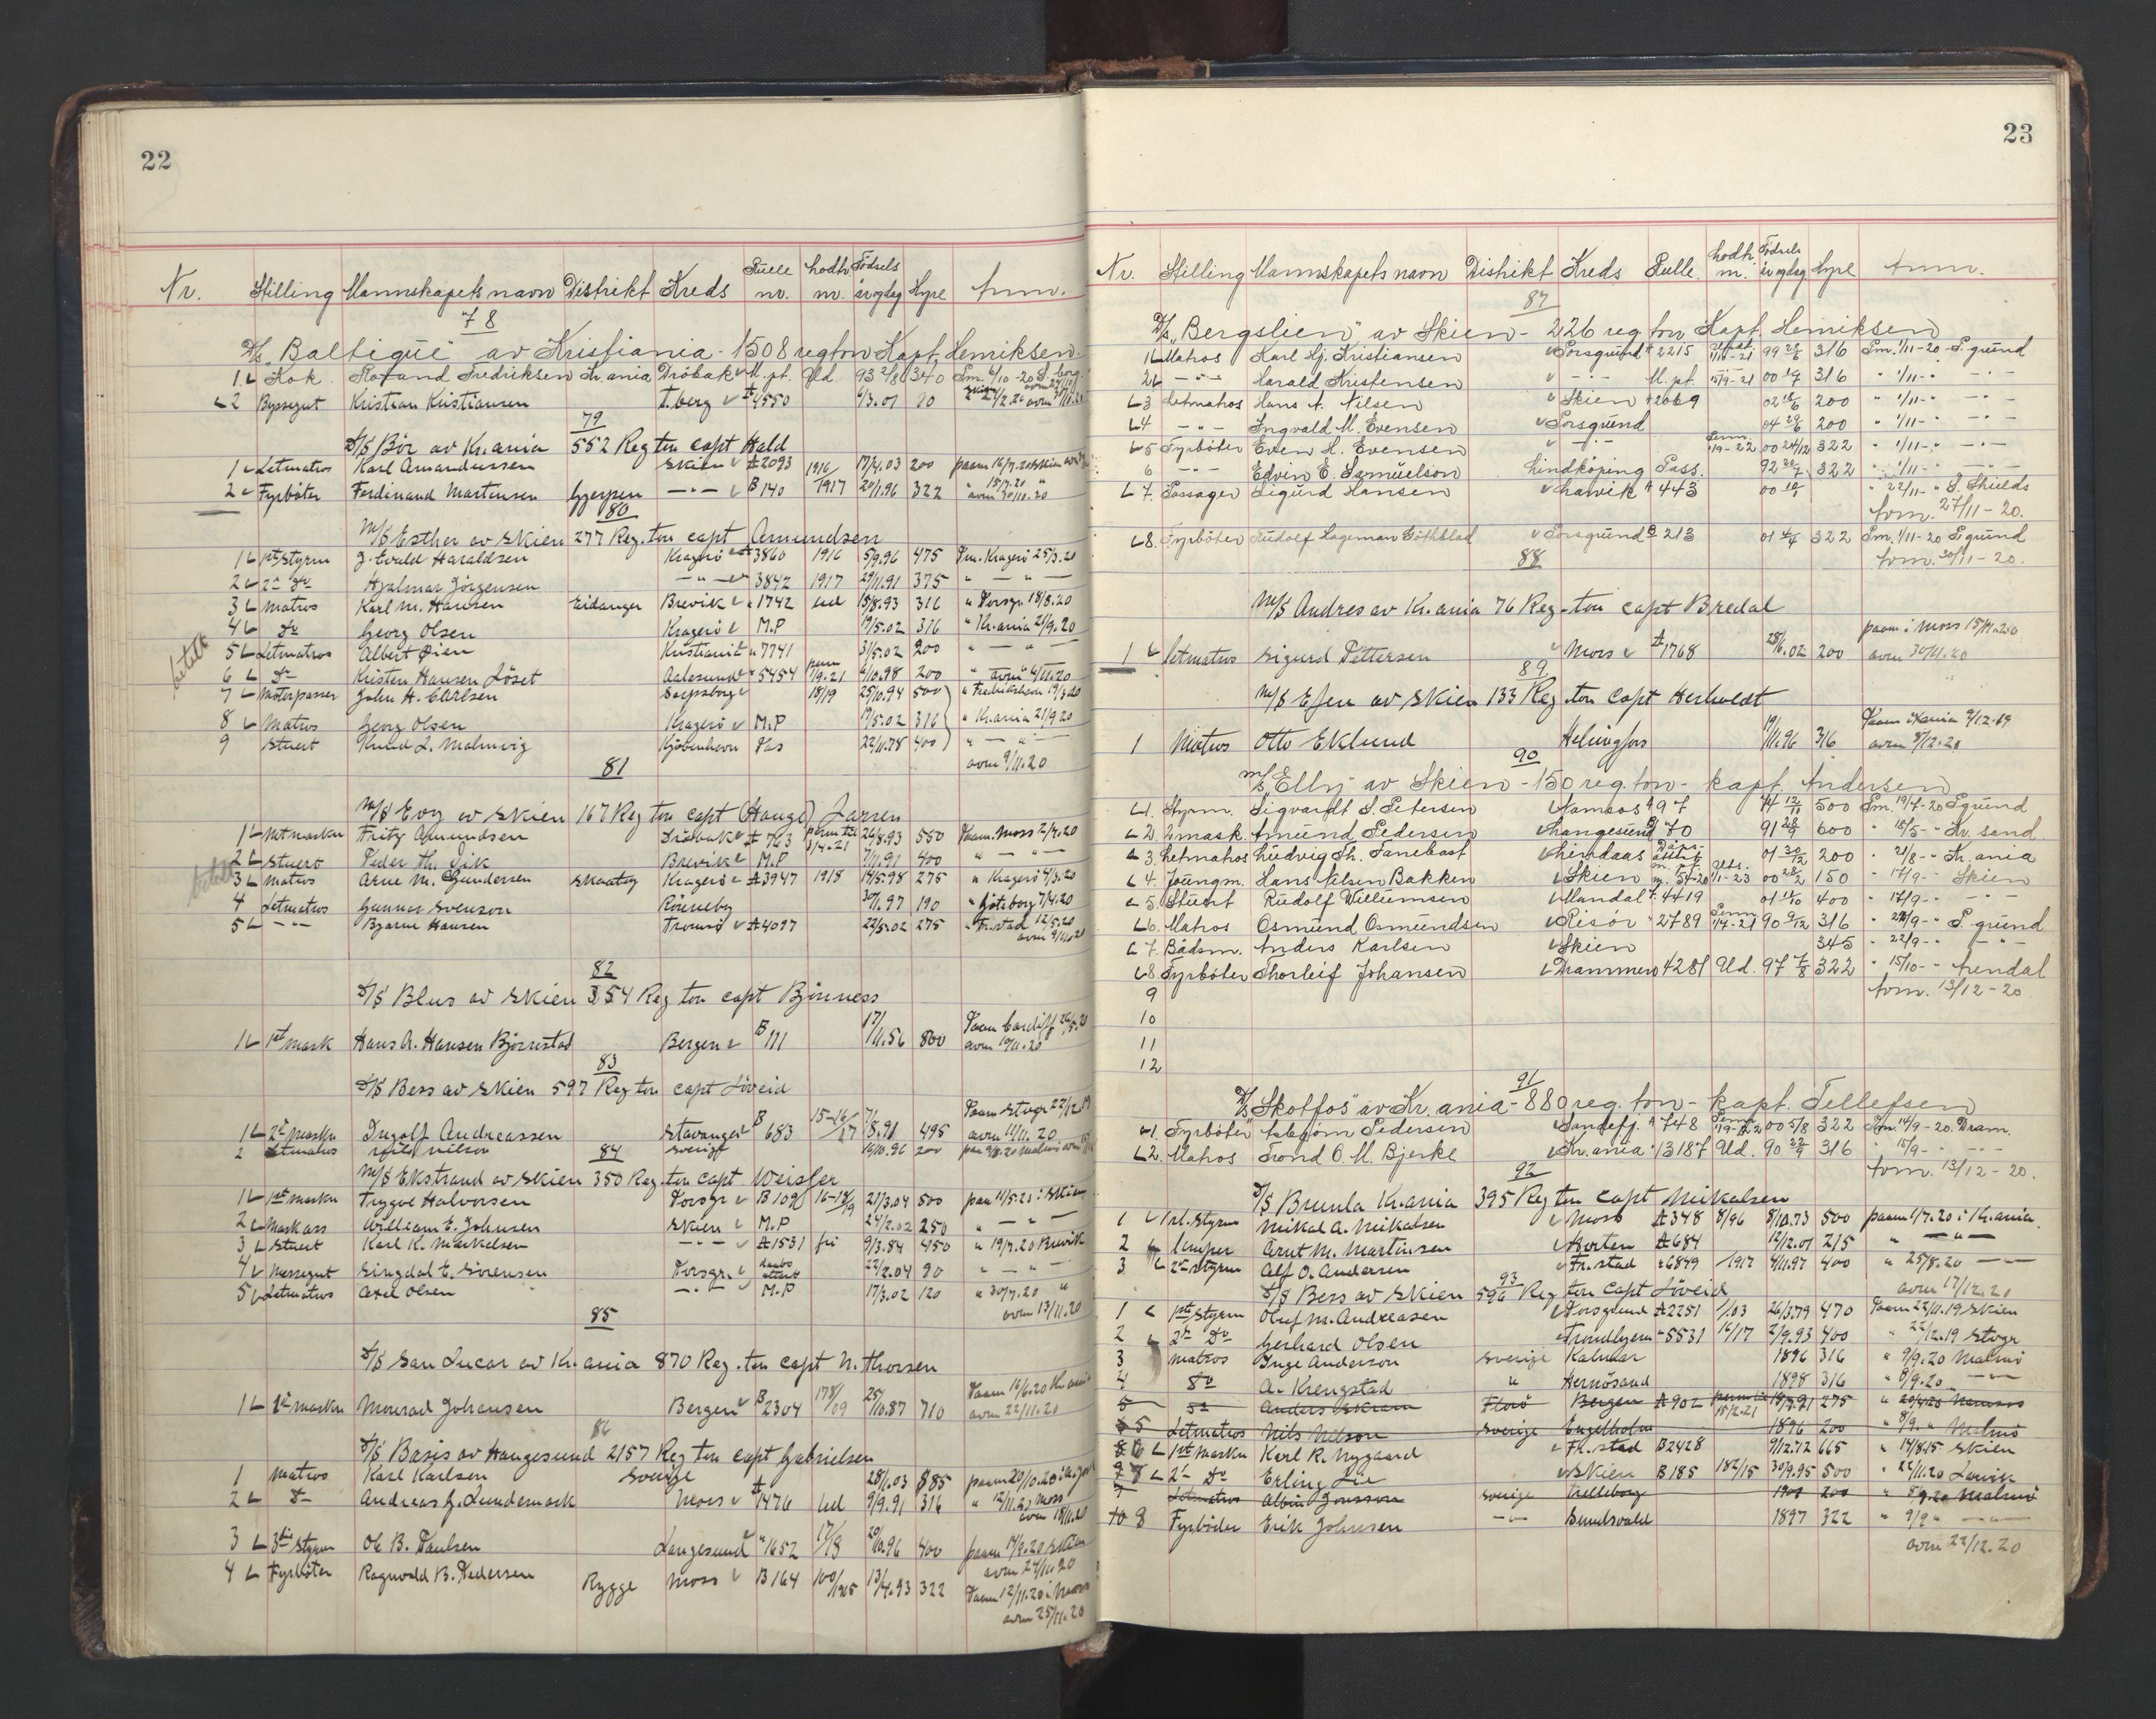 22
Nr. Stilling Mannskapets navn Distrikt Kreds Rulle nr. Lodtr. nr. Födsels år og dag Hyre Anm.
78
D/s „Baltique" av Kristiania - 1508 reg ton Kapt. Henriksen.
1 Kok Fredriksen Kr.ania Dröbak M. pt. Ud. 93 2/8 340
2 Byssegut Kristian Kristiansen T.berg A 4550 6/3.01 20
79
S/S Bör av Kr.ania 552 Reg ton capt Hald
1 Letmatros Karl Amandussen Skien A 2093 1916 17/4.03 200
2 Fyrböter Ferdinand Martensen Gjerpen -"- B 140 1917 20/1.96 322 avm 30/11.20
80
M/S Esther av Skien 277 Reg. ton capt Amundsen
1 1st Styrm J. Evald Haraldsen Kragerö 3860 1916 5/9.96 475 Pm. Kragerö 25/3.20
2 2 do Hjalmar Jörgensen -"- 3842 1917 29/11.91 375 " - " -
3 Matros Karl M. Hansen Eidanger Brevik " 1742 ud 15/8.93 316 " Porsgr. 18/8.20
4 do Georg Olsen Kragerö M.P 19/5.02 316 " Kr.ania 21/9.20
5 Letmatros Albert Öien Kristiania " 7741 31/5.02 200 " - " -
6 do Kristen Hansen Löset Aalesund " 5454 perm 1/9-21 6/10.98 200 " avm 4/11.20
7 Motorpasser John H. Carlsen Sarpsborg 18/19 25/10.94 500 " Fredrikshavn 19/3.20
8 Matros Georg Olsen Kragerö M.P 19/5.02 316 " Kr.ania 21/9 20
9 Stuert Knud L. Malmvig Kjöbenhavn Pas 22/11.78 400 " - " -
avm 9/11.20
81
M/S Evy av Skien 167 Reg ton capt (Hauge) Jansen
1 Motmaskn Fritz Amundsen Dröbak A 763 perm til 3/4-21 26/8.93 550 Paam. Moss 2/7.20
2 Stuert Peder Th. Dik Brevik M.P 7/11.91 400 " - " -
3 Matros Arne M. Gundersen Skaatöy Kragerö A 3947 1918 14/5.98 275 " Kragerö 4/3.20
4 Letmatros Gunnar Svenson Rönneby 30/1.97 190 " Göteborg 7/4.20
5 -"- Bjarne Hansen Tromsö A 4097 22/5.02 275 " Fr.stad 12/5.20
avm 9/11.20
82
S/S Blus av Skien 354 Reg ton capt Björnness
1 1st Mask Hans A. Hansen Björnstad Bergen B 111 17/11.56 800 Paam Cardiff 26/5.20
avm 10/11.20
83
S/S Bess av Skien 597 Reg ton capt Löveid
Paam Stvgr 22/12.19
1 2' Maskn Ingolf Andreassen Stavanger B 683 15-16/17 7/8.91 495 avm 11/11.20
2 Letmatros Nilson Sverige 16/10.96 200
84
M/S Ekstrand av Skien 350 Reg. ton capt. Weisser
1 1st Maskn Trygve Halvorsen Porsgr B 102 16-18/19 21/3.04 500
2 Maskass William E. Johnsen Skien M.P 24/2.02 250 " - " -
3 Stuert Karl K. Markelsen -"- A 1531 fri 9/3.84 450 " 19/7.20 Brevik
4 Messegut Singdal E. Sörensen Porsgr. daabs attest 22/2.04 90 " - " -
5 Letmatros Axel Olsen -"- M.P 17/3.02 120 " 30/7.20 "
avm 13/11.20
85
S/S San Lucar av Kr.ania 870 Reg. ton capt N. Thorsen
1 1' Maskn Monrad Johansen Bergen B 2304 178/09 25/10.87 710 Paam 16/6.20 Kr.ania
avm 22/11.20
86
S/S Basis av Haugesund 2157 Reg ton capt Gabrielsen
1 Matros Karl Karlsen Sverige 28/1.03 885
2 do Andreas G. Lundemark Moss A 1476 ud 9/9.91 316 " 12/11.20 Moss
avm 18/11.20
3 3die Styrm Ole B. Paulsen Langesund " 1652 17/18 20/10.96 400 paam 17/9.20 Skien
avm 24/11.20
4 Fyrböter Ragnvald B. Pedersen Rygge Moss B 164 100/1915 13/4.93 322 Paam 12/11.20 i Moss
avm 25/11.20
betalt
betalt
23
Nr. Stilling Mannskapets navn Distrikt Kreds Rulle Lodtr. nr. Födsels år og dag Hyre Anm.
87
D/s „Bergslien" av Skien - 226 reg ton Kapt. Henriksen
1 Matros Karl Hj. Kristiansen Porsgrund A 2215 99 316 Pm. 1/11-20 P.grund
2 -"- Harald Kristensen -"- M. pt. 15/9-21 00 316 " 1/11-" -"-
3 Letmatros Hans A. Nilsen Skien A 2069 02 200 " 1/11-" -"-
4 -"- Ingvald M. Evensen Porsgrund 04 29/6 200 " 1/11-"
5 Fyrböter Even H. Evensen -"- 00 24/12 322 " 1/11-" -"-
6 -"- Edvin E. Samuelson Lindköping Pass. 92 322 " 1/11-" -"-
7. Passager Sigurd Hansen Larvik A 443 00 " 22/11-" S. Shields
Avm. 27/11-20.
8. Fyrböter Rudolf Hageman Göthblad Porsgrund B 213 01 322 Pm. 1/11-20 P.grund
Avm. 30/11-20.
88
M/S Andres av Kr.ania 76 Reg. ton capt Bredal
paam i Moss 15/11.20
1 Letmatros Sigurd Pettersen Moss A 1768 28/6.02 200 avm 30/11.20
89
M/S Efen av Skien 133 Reg. ton Capt Herholdt
1 Matros Otto Eklund Helsingfors 19/11.96 316 avm 8/12.20
90
M/s „Elly" av Skien - 150 reg. ton - Kapt. Andersen
1. Styrm. Sigvardt S. Petersen Namsos A 97 500 Pm. 19/7-20 P.grund
2. 2 mask. Amund Pedersen Langesund B 70 91 28/9 600 " 18/5-" Kr. sand
3. Letmatros Ludvig Th. Tanebast Lindaas 01 30/12 200 " 21/8-" Kr.ania
4. Joungm. Hans Nilsen Bakken Skien 00 28/2 150 " 17/9-" Skien
5. Stuert Rudolf Williumsen Mandal A 4419 01 400 " 17/9-" -"-
6. Matros Osmund Osmundsen Risör " 2789 90 9/12 316 " 22/9-" P.grund
7. Bådsm. Anders Karlsen Skien 345 " 22/9-" -"-
8 Fyrböter Thorleif Johansen Drammen 4281 Ud. 97 7/8 322 " 15/10-" Arendal
9 Avm. 13/12-20.
10
11
12
91
D/s „Skotfos" av Kr.ania - 880 reg. ton - Kapt. Tellefsen
1. Fyrböter Pedersen Sandefj. A 748 00 5/8 322 Pm. 14/9-20. Dram.
2. Matros Trond O. M. Bjerke Kr.ania " 13187 Ud. 90 22/9 316 " 15/9-" -"-
Avm. 13/12-20.
92
S/S Brunla Kr.ania 395 Reg ton Capt Mikalsen
1 1st. Styrm Mikal A. Mikalsen Moss A 348 8/96 8/10.73 500 paam 1/7.20 i Kr.ania.
2 Lemper Arnt M. Martinsen Horten A 684 12/12.01 215 " - " -
3 2' Styrm Alf O. Andersen Fr.stad " 6849 1917 4/11.97 400 " 25/8.20 -"-
avm 17/12.20
93
S/S Bess av Skien 596 Reg ton Capt Löveid
1 1st Styrm Oluf M. Andreasen Porsgrund A 2251 1/03 26/3.79 470 Paam 22/11.19 Skien
2 2' do Gerhard Olsen Trondhjem " 5531 16/17 2/9.93 400 " 22/12.19 Stvgr
3 Matros Inge Anderson Sverige Kalmar 1896 316 " 9/9.20 Malmö
4 do A. Krengstad " Hernösand 1898 316 " 8/9.20 -"-
5 do Anders Florö Bergen A 902 perm til 15/2-21 18/9.91 275 " 20/4.20 Namsos
5 Letmatros Nils Nilson Sverige Engelholm 1896 200 " 8/9. " Malmö
6 1st Maskn Karl R. Nygaard Fr.stad B 2428 9/12.72 665 " 14/8.15 Skien
7 2' do Erling Lie Skien B 185 182/15 30/9.95 500 " 22/11.20 Larvik
Letmatros Albin Jonsson Sverige Trelleborg 1901 200 " 8/9.20 Malmö
8 Fyrböder Erik Johnsen -"- Sundsvald 1897 322 " 9/9 " -"-
avm 22/12.20